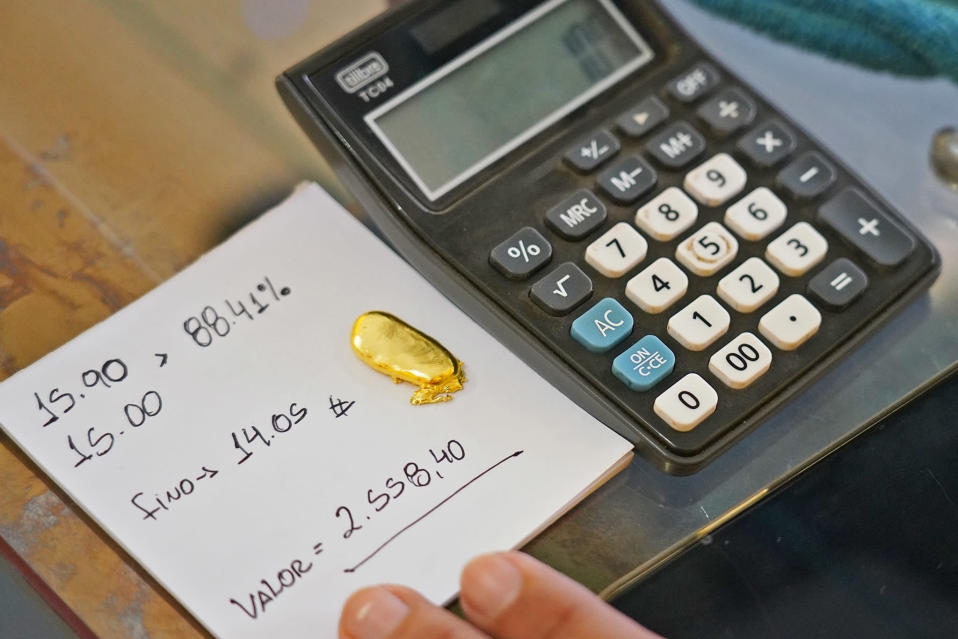 15.90 > 88.41%
15.00
FINO→ 14.05 #
VALOR = 2.558,40
tilibra
TC04
OFF
+/-
▶
÷
MRC
M-
M+
×
%
7
8
9
-
√
4
5
6
+
AC
1
2
3
ON
C·CE
0
00
.
=